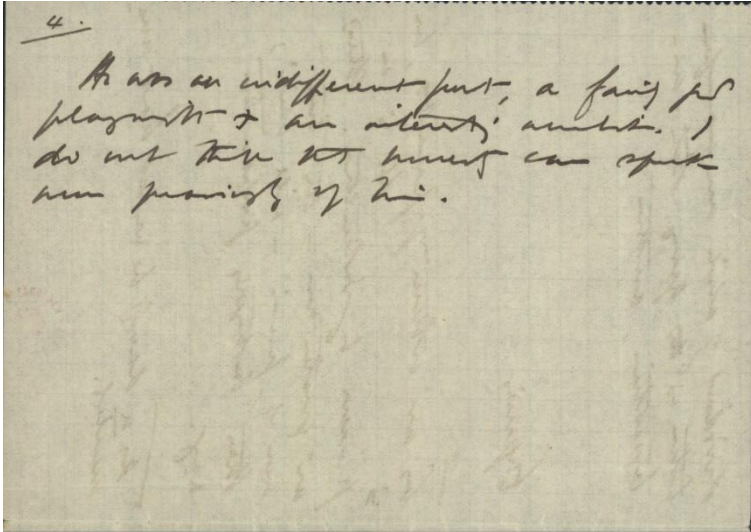 4.
He was an indifferent poet, a fairly good
playwright & an interesting novelist. I
do not think that honesty can speak
more praisingly of him.